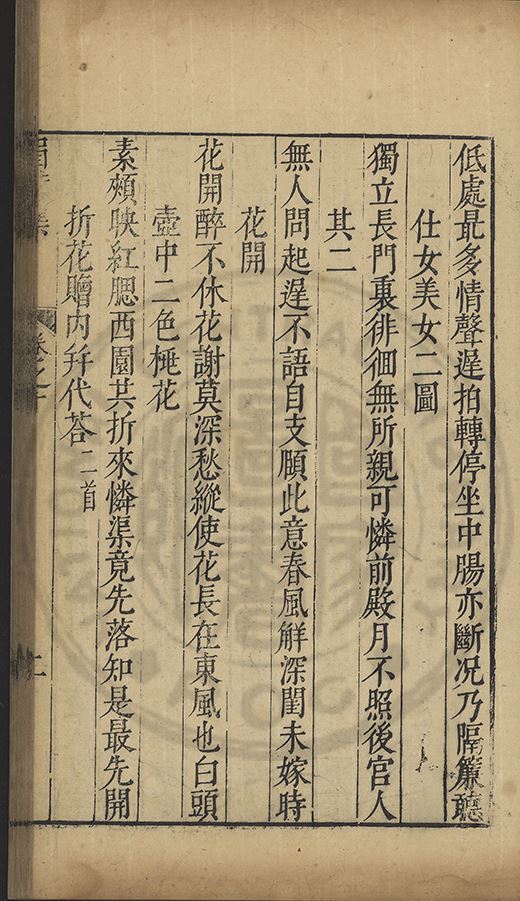 低處最多情聲遲拍轉停坐中腸亦斷况乃隔簾聽
仕女美女二圖
獨立長門裏徘徊無所親可憐前殿月不照後宫人
其二
無人問起遲不語自支頤此意春風解深閨未嫁時
花開
花開醉不休花謝莫深愁縱使花長在東風也白頭
壺中二色桃花
素頰映紅腮西園其折來憐渠竟先落知是最先開
折花贈内并代荅二首
卷之